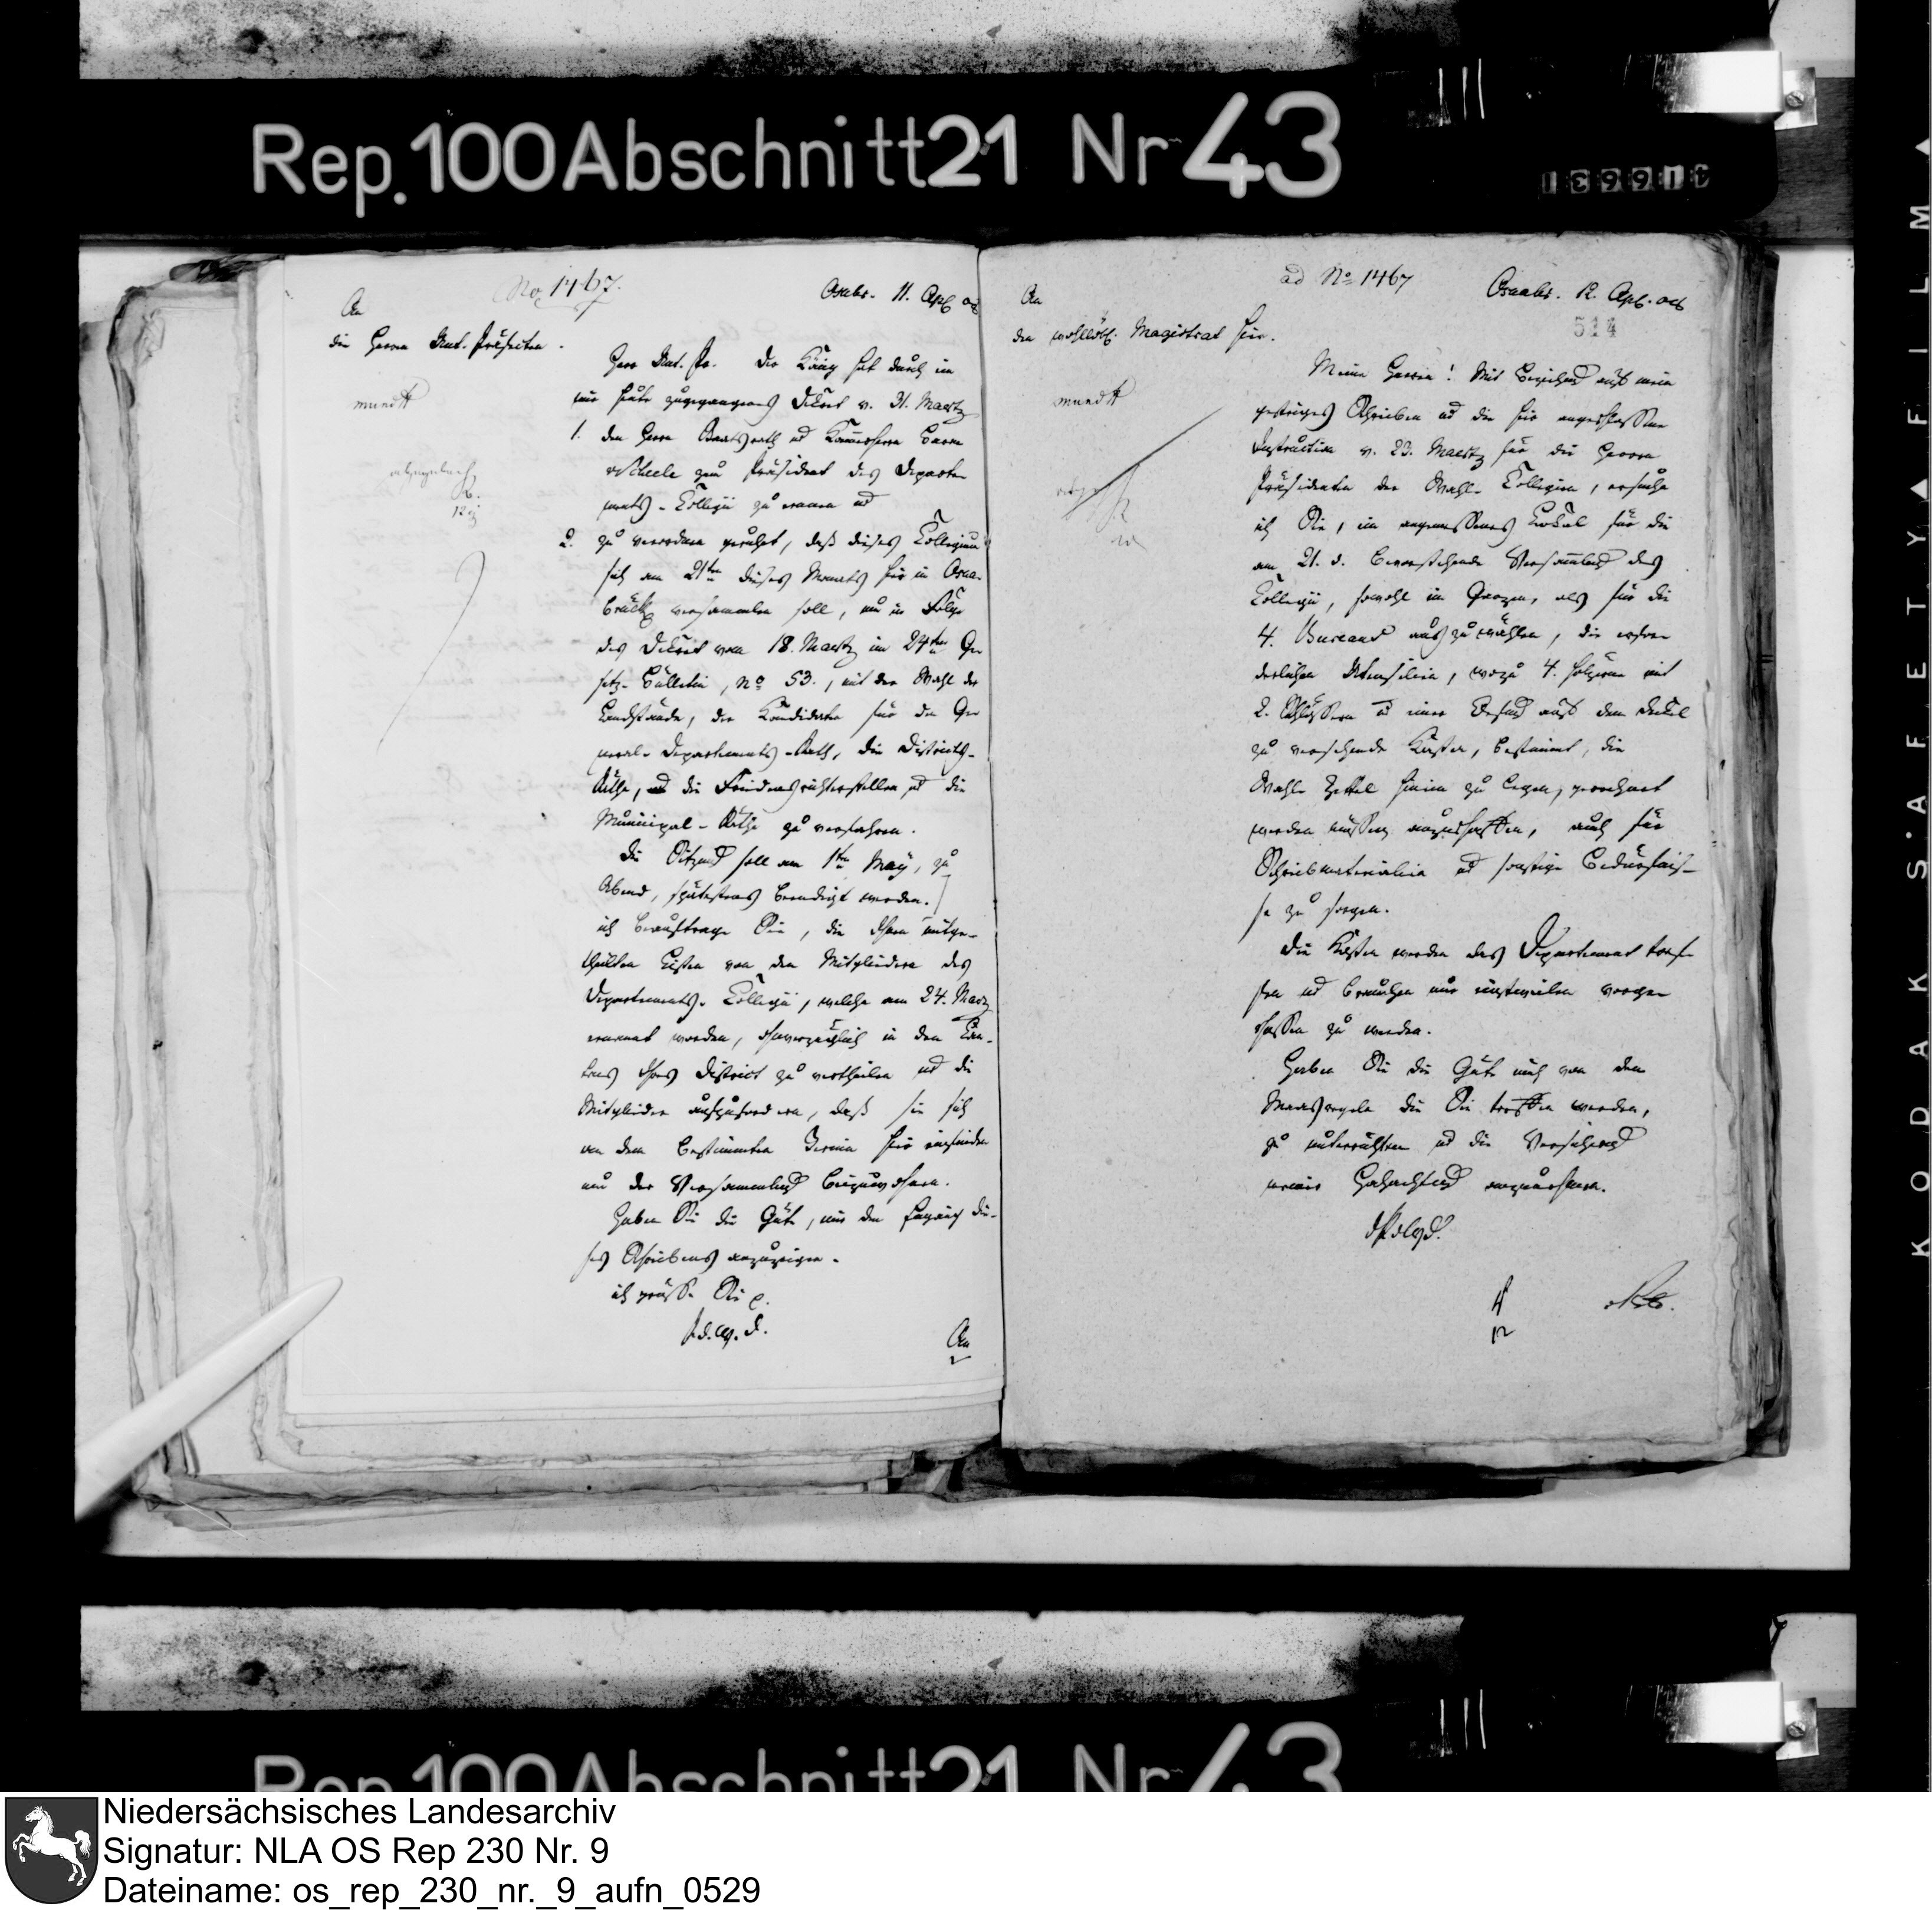 Rep. 100 Abschnitt 21 Nr 43
No 1467.
Osnbr. 11. Apl 08
An
die Herren Unt. Präfecten.
Herr Unt. Pr. Der König hat durch ein
mundt
mir heute zugegangenes Decret v. 31. Maertz
1. den Herrn Staatsrath und Kammerherrn
vScheele zum Präsident des Departe
ments-Collegii zu ernennen und
2. zu verordnen geruhet, daß dieses Collegium
sich am 21ten dieses Monats hier in Osna-
brück versammlen soll, um in Folge
des Decrets vom 18. Maertz im 24ten Ge
setz-Bülletin, No 53., mit der Wahl der
Landstände, der Kandidaten für den Ge
neral-Departements-Rath, die Districts-
Räthe, und die Friedensrichterstellen und die
Municipal-Räthe zu verfahren.
Die Sitzung soll am 1ten May, zu
Abend, spätestens beendigt werden.
ich beauftrage Sie, die Ihnen mitge-
theilten Listen von den Mitgliedern des
Departements-Collegii, welche am 24. Maerz
ernannt worden, ohnverzüglich in den Can-
tons Ihres District zu vertheilen und die
Mitglieder aufzufordern, daß sie sich
an dem bestimmten Termin hier einfinden
um der Versammlung beizuwohnen.
Haben Sie die Güte, mir den Empfang die-
ses Schreibens anzuzeigen.
ich grüße Sie
An
ad No 1467
Osnabr. 12. Apl. 08
514
An
den wohllöbl. Magistrat hier.
Meine Herren! Mit Beziehung auf mein
mundt
gestriges Schreiben und die hier angeschlossene
Instruction v. 23. Maertz für die Herren
Präsidenten der Wahl-Collegien, ersuche
ich Sie, ein angemessenes Lokal für die
am 21. d. bevorstehende Versammlung des
Collegii, sowohl im Ganzen, als für die
4. Bureaus auszuwählen, die erfor
derlichen Utensilien, wozu 4. hölzerne mit
2. Schlössern und einer Oefnung auf dem Deckel
zu versehende Kasten, bestimmt, die
Wahl-Zettel hinein zu legen, gerechnet
werden müssen anzuschaffen, auch für
Schreibmaterialien und sonstige Bedürfnis-
se zu sorgen.
Die Kosten werden das Departement tref-
fen und brauchen nur einstweilen vorge
schossen zu werden.
Haben Sie die Güte mich von den
Maasregeln die Sie treffen werden,
zu unterrichten und die Versicherung
meiner Hochachtung anzunehmen.
KODAK SAFETY FILM
Niedersächsisches Landesarchiv
Signatur: NLA OS Rep 230 Nr. 9
Dateiname: os_rep_230_nr._9_aufn_0529